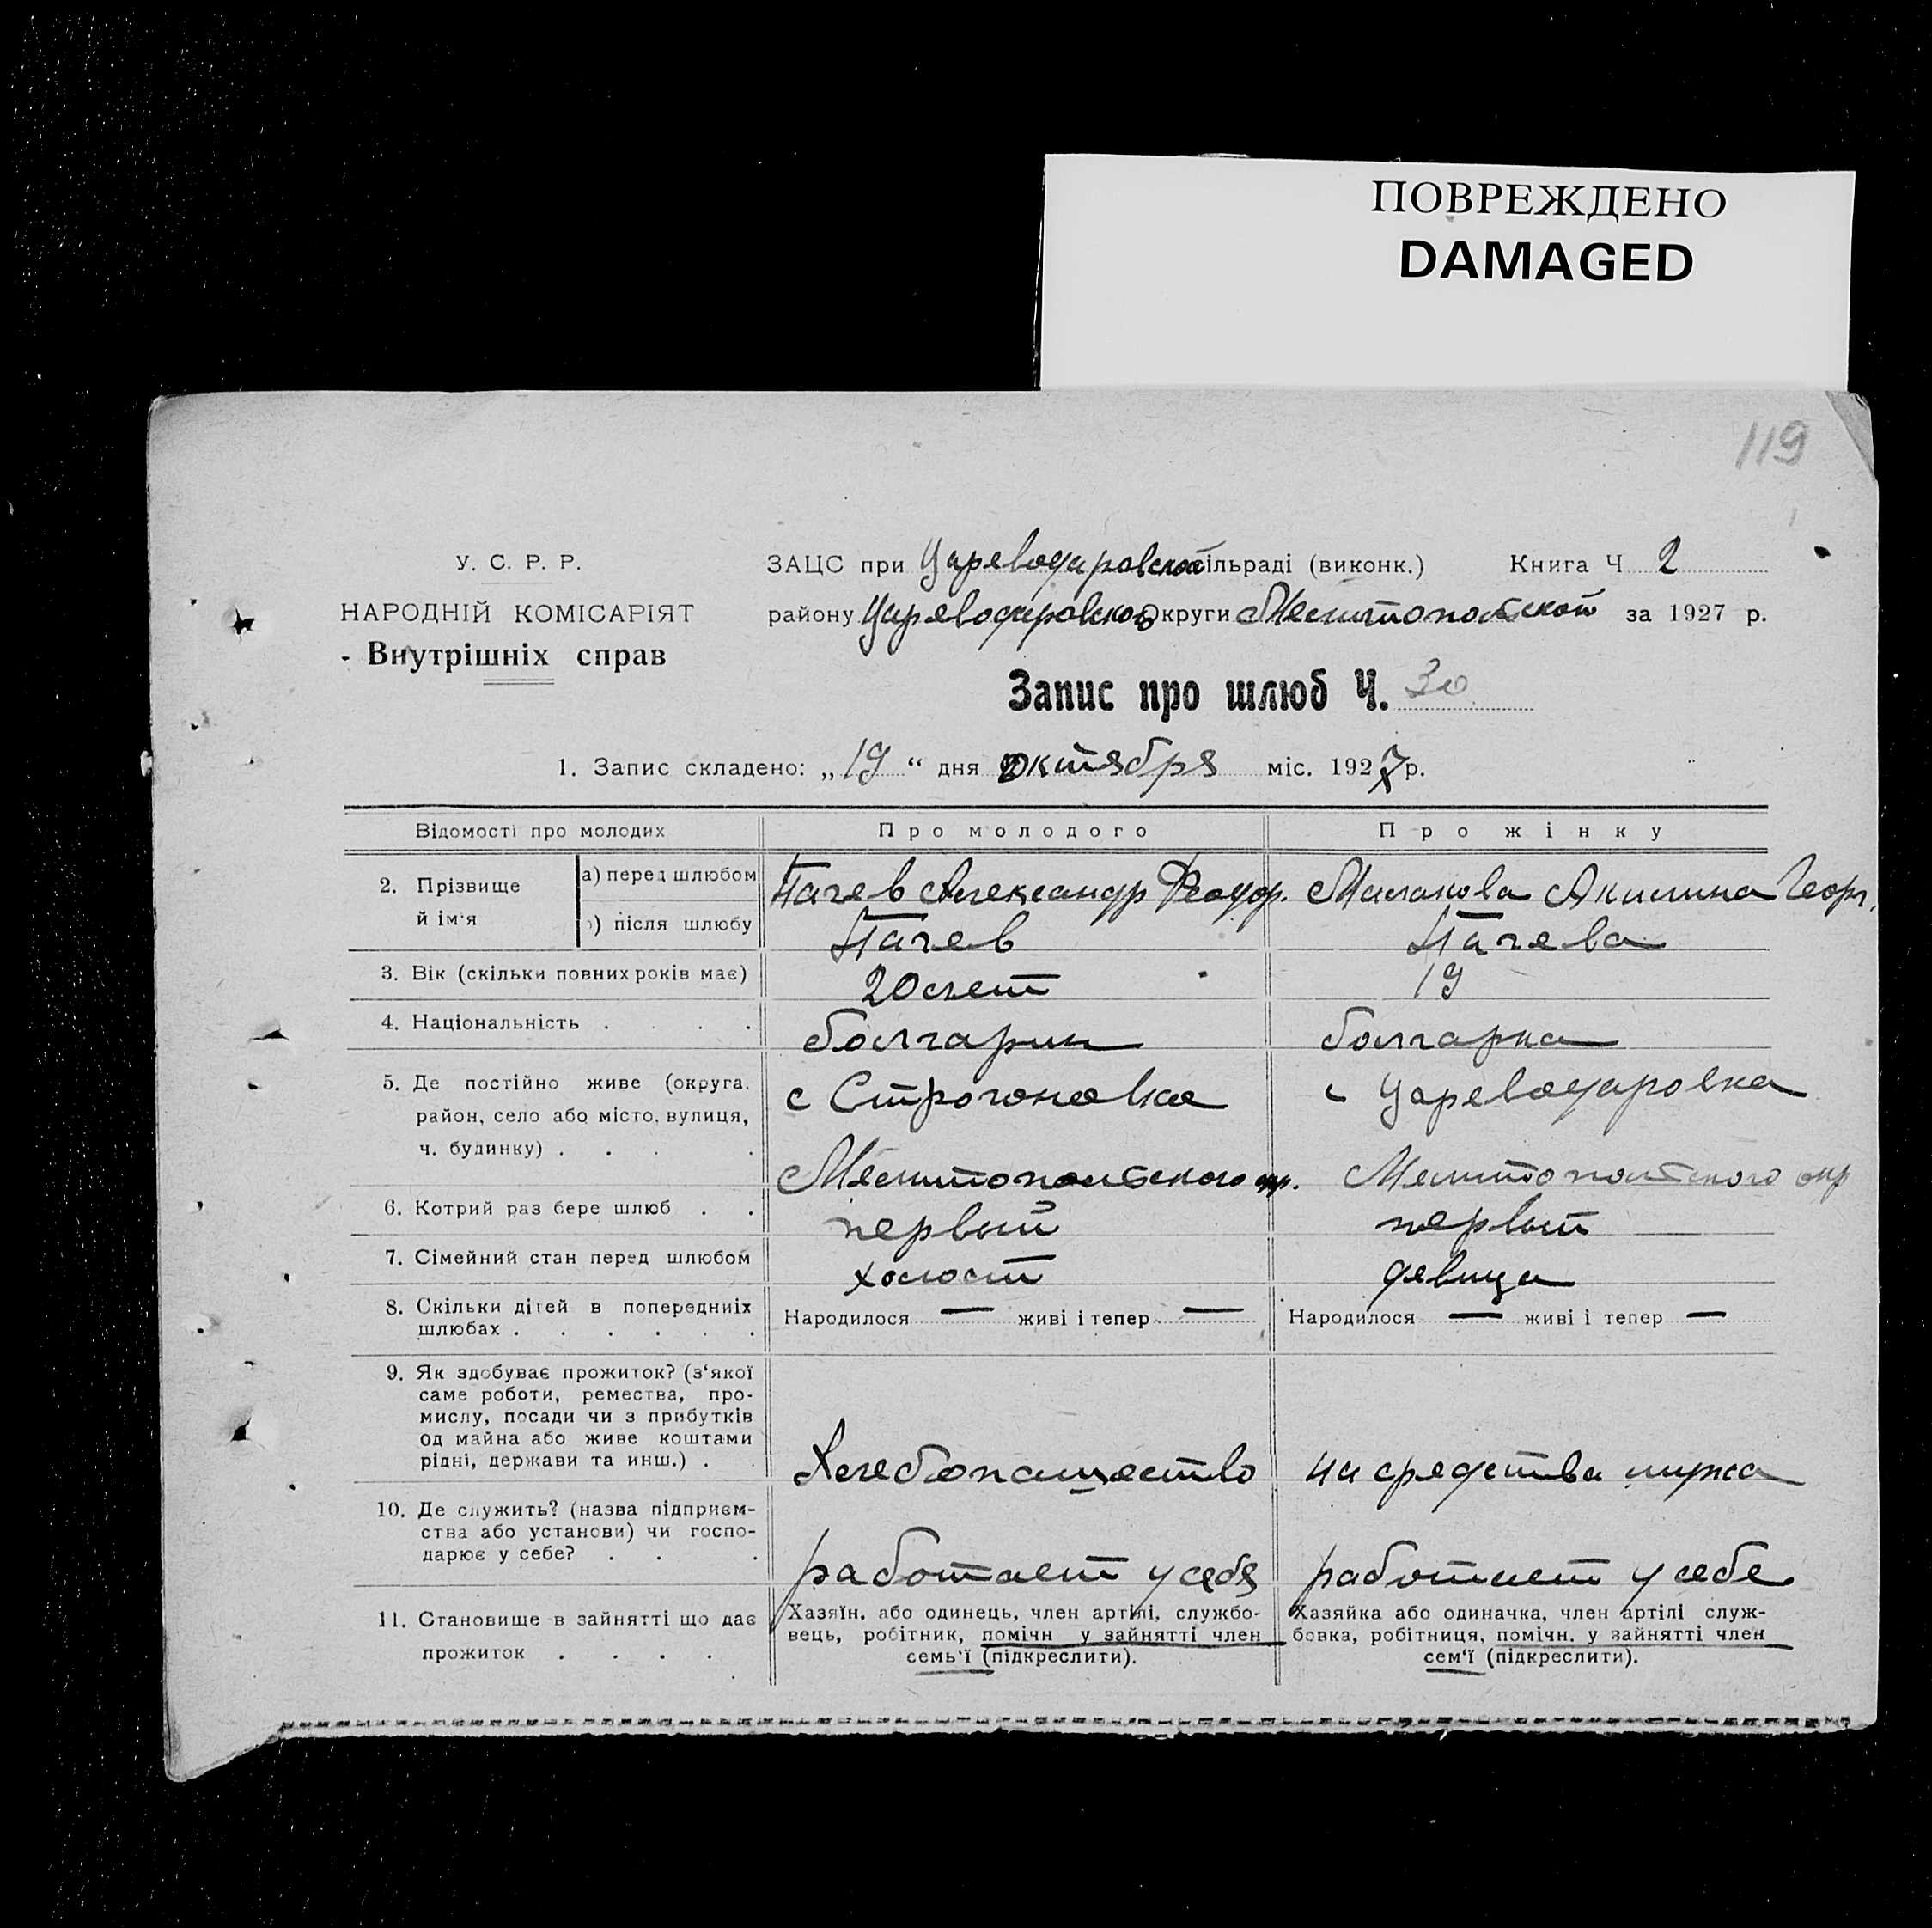 ПОВРЕЖДЕНО
DAMAGED
119
У. С. Р. Р.
НАРОДНІЙ КОМІСАРІЯТ
Внутрішніх справ
ЗАЦС при Цареводаровской сільраді (виконк.) Книга Ч 2
району Цареводаровског округи Мелитопольской за 1927 р.
Запис про шлюб Ч. 30
1. Запис складено: „19“ дня октября міс. 1927 р.
Відомості про молодих Про молодого Про жінку
2. Прізвище й ім'я
а) перед шлюбом Пачев Александр Феодор. Малакова Акилина Георг.
б) після шлюбу Пачев Пачева
3. Вік (скільки повних років має) 20 лет 19
4. Національність болгарин болгарка
5. Де постійно живе (округа, район, село або місто, вулиця, ч. будинку) с Строгоновка с Цареводаровка
Мелитопольского окр. Мелитопольского окр
6. Котрий раз бере шлюб первый первый
7. Сімейний стан перед шлюбом холост девица
8. Скільки дітей в попередниіх шлюбах Народилося — живі і тепер — Народилося — живі і тепер —
9. Як здобуває прожиток? (з‘якої
саме роботи, ремества, про-
мислу, посади чи з прибутків
од майна або живе коштами
рідні, держави та инш.) Хлебопашество на средства мужа
10. Де служить? (назва підприєм-
ства або установи) чи госпо-
дарює у себе? работает у себя работает у себе
11. Становище в зайнятті що дає
прожиток
Хазяїн, або одинець, член артілі, службо-
вець, робітник, помічн у зайнятті член
семь‘ї (підкреслити).
Хазяйка або одиначка, член артілі служ-
бовка, робітниця, помічн. у зайнятті член
сем‘ї (підкреслити).